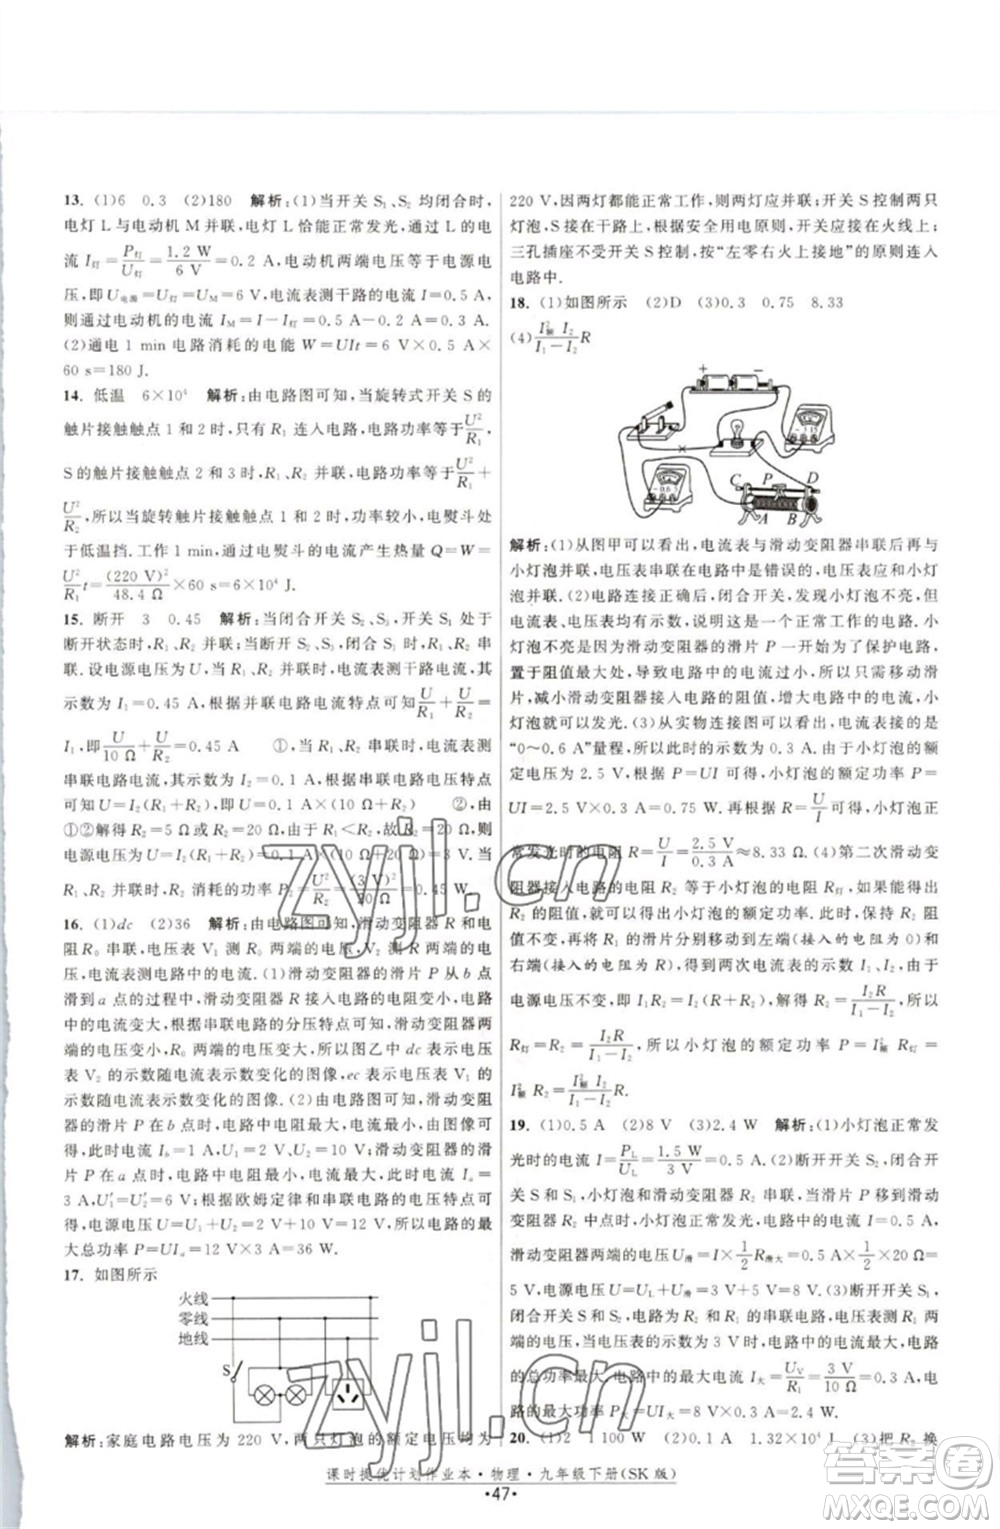 13. (1)6 0.3 (2)180 解析:(1)当开关 S₁、S₂ 均闭合时,
电灯 L 与电动机 M 并联,电灯 L 恰能正常发光,灯的电
流 I灯=P灯/U灯=1.2 W/6 V=0.2 A,电动机两端电压与电源电压
相等,即 U电源=U灯=UM=6 V,电流表测干路的电流 I=0.5 A,
则通过电动机的电流 IM=I-I灯=0.5 A-0.2 A=0.3 A.
(2)通电 1 min 电路消耗的电能 W=UIt=6 V×0.5 A×
60 s=180 J.
14. 低温 6×10⁴ 解析:由电路图可知,当旋转式开关 S 的
触片接触触点 1 和 2 时,只有 R₁ 连入电路,电路功率等于 U²/R₁,
S 的触片接触触点 2 和 3 时,R₁、R₂ 并联,电路功率等于 U²/R₁+
U²/R₂,所以当旋转触片接触触点 1 和 2 时,功率较小,电熨斗处
于低温挡.工作 1 min,通过电熨斗的电流产生热量 Q=W=
U²/R₁ t=(220 V)²/48.4 Ω×60 s=6×10⁴ J.
15. 断开 3 0.45 解析:当闭合开关 S₂、S₃,开关 S₁ 处于
断开状态时,R₁、R₂ 并联;当断开 S₂、S₃,闭合 S₁ 时,R₁、R₂ 串
联.设电源电压为 U,当 R₁、R₂ 并联时,电流表测干路电流,其
示数为 I₁=0.45 A,根据并联电路电流特点可知 U/R₁+U/R₂=
I₁,即 U/10 Ω+U/R₂=0.45 A ①,当 R₁、R₂ 串联时,电流表测
串联电路电流,其示数为 I₂=0.1 A,根据串联电路电压特点
可知 U=I₂(R₁+R₂)=0.1 A×(10 Ω+R₂) ②,由
①②解得 R₂=5 Ω 或 R₂=20 Ω,由于 R₁<R₂,故 R₂=20 Ω,则
电源电压为 U=I₂(R₁+R₂)=0.1 A×(10 Ω+20 Ω)=3 V,当
R₁、R₂ 并联时,R₂ 消耗的功率 P₂=U²/R₂=(3 V)²/20 Ω=0.45 W.
16. (1)dc (2)36 解析:由电路图可知,滑动变阻器 R 和电
阻 R₀ 串联,电压表 V₁ 测 R₀ 两端的电压,电压表 V₂ 测 R 两端的电
压,电流表测电路中的电流.(1)滑动变阻器的滑片 P 从 b 点
滑到 a 点的过程中,滑动变阻器 R 接入电路的电阻变小,电路
中的电流变大,根据串联电路的分压特点可知,滑动变阻器两
端的电压变小,R₀ 两端的电压变大,所以图乙中 dc 表示电压
表 V₂ 的示数随电流表示数变化的图像,ec 表示电压表 V₁ 的
示数随电流表示数变化的图像.(2)由电路图可知,滑动变阻
器的滑片 P 在 b 点时,电路中电阻最大,电流最小,由图像可
得 I=1 A、U₁=U₂=6 V,则电源电压 U=12 V;滑动变阻器的滑
片 P 在 a 点时,电路中电阻最小,电路中的电流最大 Ia=
3 A、U₁′=U₂′=6 V;根据欧姆定律和串联电路的电压特点可知
电源电压 U=U₁+U₂=6 V+6 V=12 V,所以电路的最
大总功率 P=UIa=12 V×3 A=36 W.
17. 如图所示
火线
零线
地线
S
解析:家庭电路电压为 220 V,两只灯泡的额定电压均为
220 V,因为两灯都能正常工作,则两灯应并联;开关 S 控制两只
灯泡,S 接在干路上,根据安全用电原则,开关应在火线上;
三孔插座不受开关 S 控制,按“左零右火上接地”的原则连入
电路中.
18. (1)如图所示 (2)D (3)0.3 0.75 8.33
(4) I额² I₂/(I₁-I₂) R
+ - C P D A B
解析:(1)从图甲可以看出,电流表与滑动变阻器串联后再与
小灯泡并联,电压表串联在电路中是错误的,电压表应和小灯
泡并联.(2)检查电路时发现,闭合开关后,小灯泡不亮,但
电流表、电压表均有示数,说明这是一个正常工作的电路.小
灯泡不亮是因为滑动变阻器的滑片 P 一开始为了保护电路,
置于阻值最大处,导致电路中的电流过小,所以应移动滑
片,减小滑动变阻器接入电路的阻值,增大电路中的电流,小
灯泡就可以发光.(3)从实物连接图可以看出,电流表的量程是
“0~0.6 A”量程,它的示数为 0.3 A.由于小灯泡的额
定电压为 2.5 V,根据 P=UI 可得,小灯泡的额定功率 P=
UI=2.5 V×0.3 A=0.75 W.再根据 R=U/I 可得,小灯泡正
常发光时的电阻 R=U/I=2.5 V/0.3 A≈8.33 Ω.(4)第二次滑动变
阻器接入电路的电阻 R₂ 等于小灯泡的电阻,如果能求出
R₂ 的电阻值,也就可以得到小灯泡的额定功率.把 R₂ 保留
在电路中,使 R 的滑片分别移动到左端(接入的电阻为 0)和
右端(接入的电阻为 R),得到两次电流值分别为 I₁、I₂.由于
电源电压不变,得到 I₁R₂=I₂(R+R₂),解得 R₂=I₂R/(I₁-I₂),所以
R灯=R₂=I₂R/(I₁-I₂),所以小灯泡的额定功率 P=I额² R灯=
I额² R₂=I额² I₂/(I₁-I₂) R.
19. (1)0.5 A (2)8 V (3)2.4 W 解析:(1)小灯泡正常发
光时的电流 I=PL/UL=1.5 W/3 V=0.5 A.(2)断开开关 S₂,闭合开
关 S 和 S₁,小灯泡与滑动变阻器 R₂ 串联,当滑片 P 移至滑动
变阻器 R₂ 的中点时,小灯泡正常发光,电路电流 I=0.5 A,
滑动变阻器两端的电压 U滑=I×1/2 R滑大=0.5 A×1/2×20 Ω=
5 V,电源电压 U=UL+U滑=3 V+5 V=8 V.(3)断开开关 S₁,
闭合开关 S 和 S₂,R₁ 和 R₂ 组成的串联电路,电压表测 R₁ 两
端的电压,当电压表的示数为 3 V 时,电路中的电流最大,电路
的总功率最大,电路中的最大电流 I大=UV/R₁=3 V/10 Ω=0.3 A,
电路的最大功率 P大=UI大=8 V×0.3 A=2.4 W.
20. (1)2 1 100 W (2)0.1 A 1.32×10⁴ J (3)把 R₂ 换
课时提优计划作业本·物理·九年级下册(SK版)
·47·
zyjl.cn
zyjl.cn
答案圈
MXQE.COM